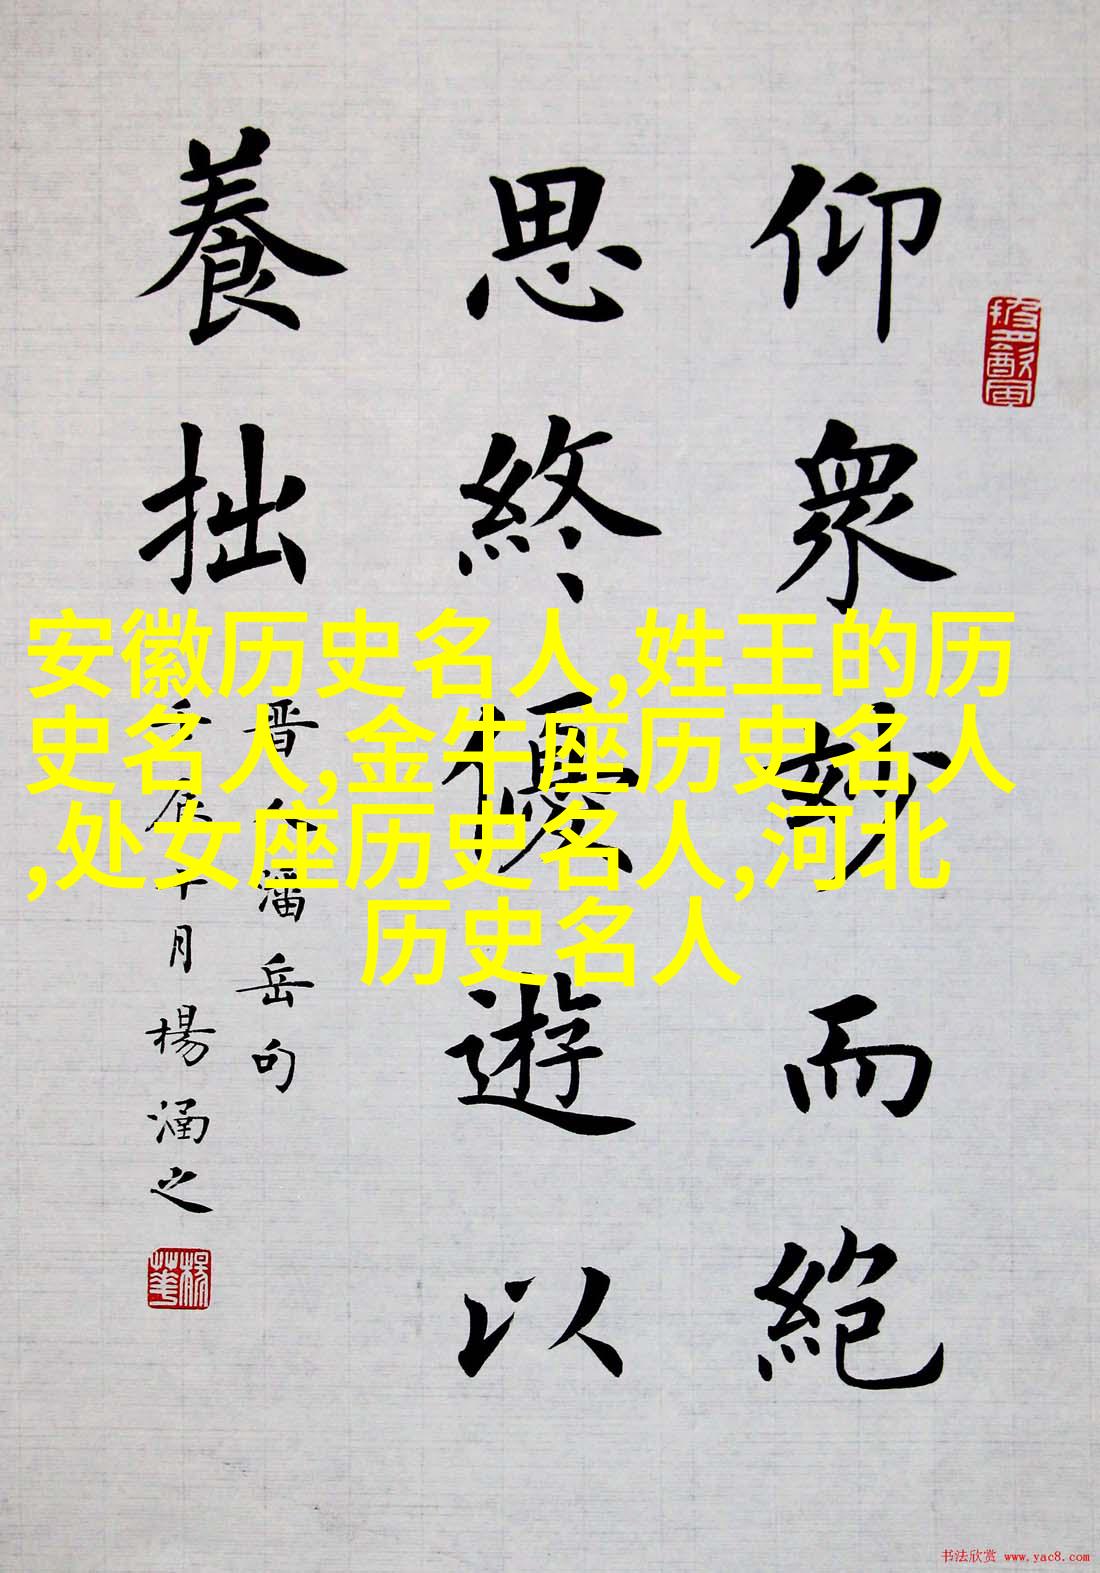 仰眾玅而絕
思終優遊以
養拙
晉潘岳句
辰年月楊涵之
安徽历史名人,姓王的历
史名人,金牛座历史名人
,处女座历史名人,河北
历史名人
书法欣赏 www.yac8.com